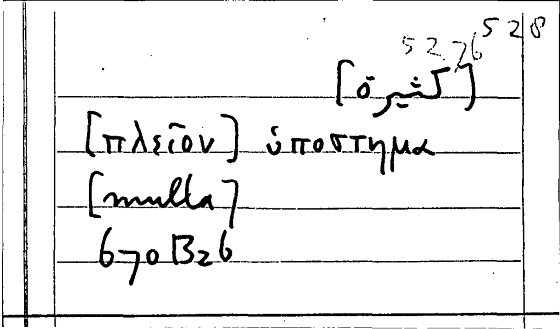 528
5276
[كثيرة]
[πλεῖον] ὑπόστημα
[multa]
670B26